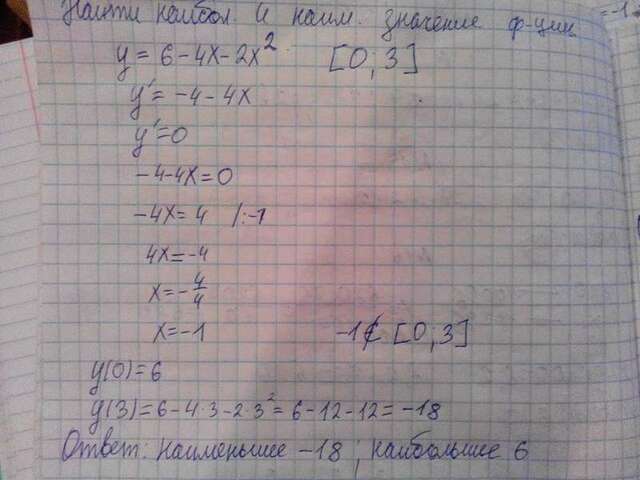 Найти наибол. и наим. значение ф-ции
y = 6 - 4x - 2x² [0; 3]
y' = -4 - 4x
y' = 0
-4 - 4x = 0
-4x = 4 /:-1
4x = -4
x = -4/4
x = -1 -1 ∉ [0; 3]
y(0) = 6
y(3) = 6 - 4·3 - 2·3² = 6 - 12 - 12 = -18
Ответ: наименьшее -18; наибольшее 6